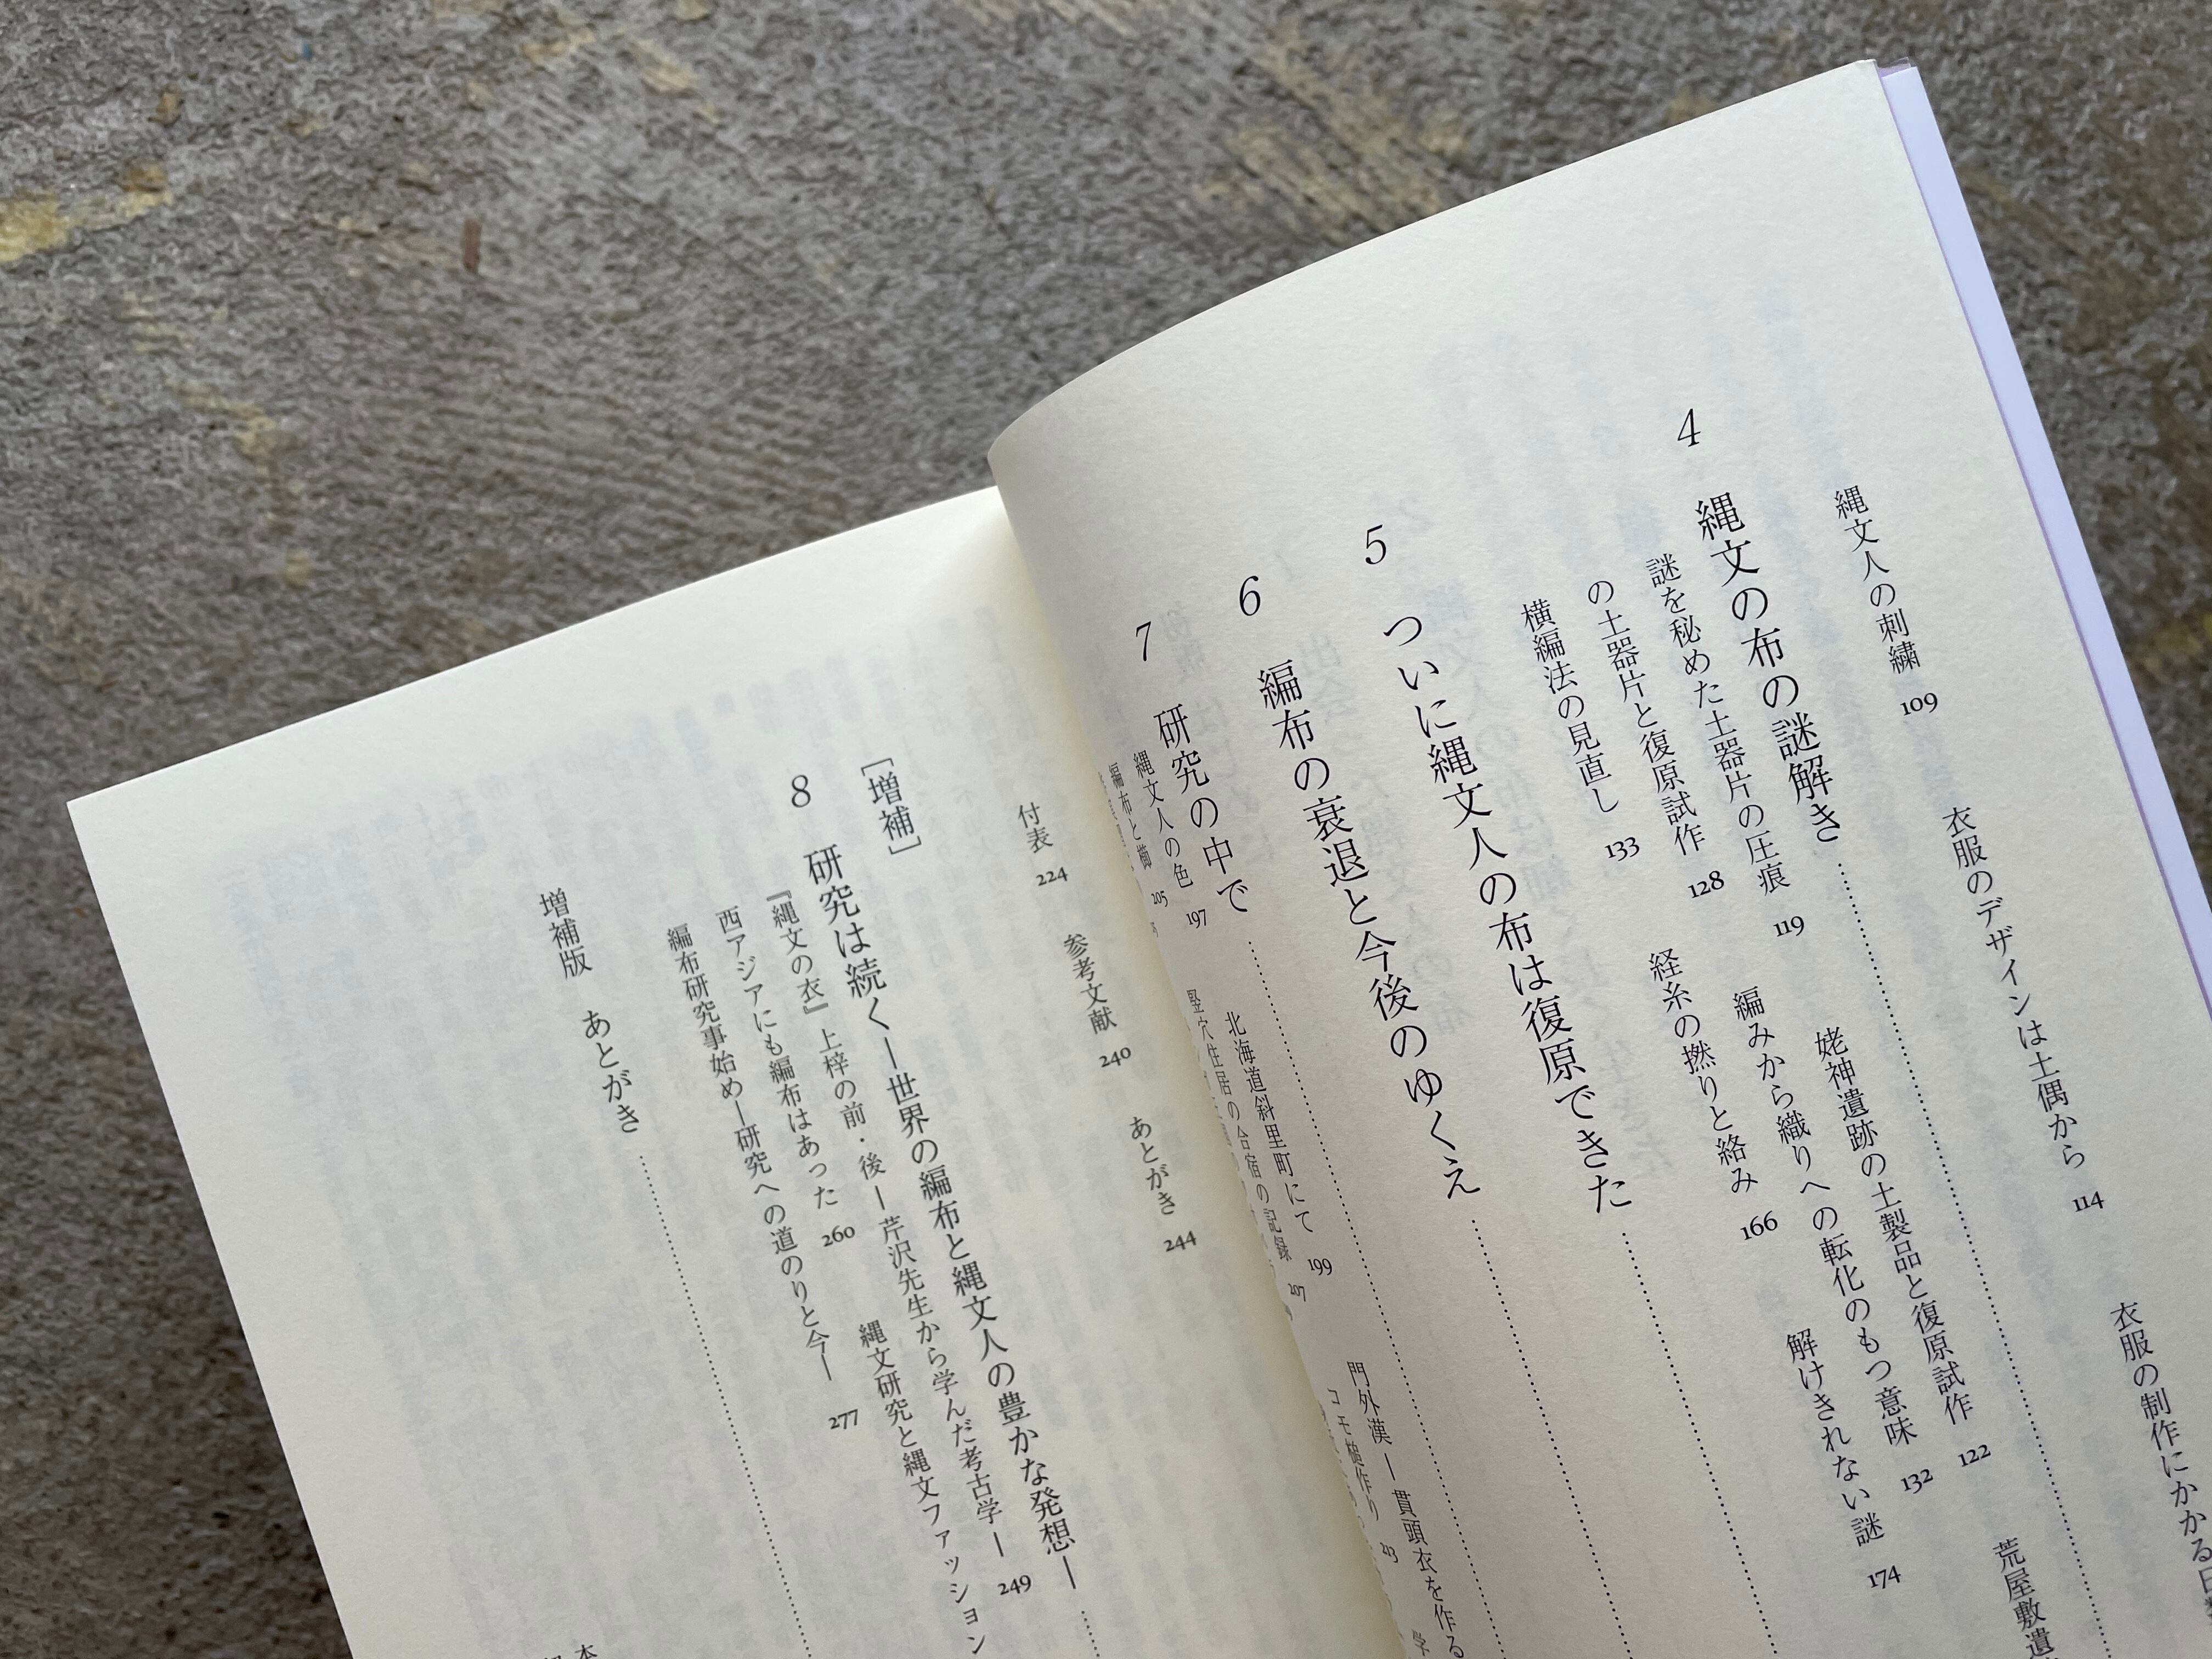 縄文人の刺繍 109 衣服のデザインは土偶から 114 衣服の制作にかかる日数
4 縄文の布の謎解き
謎を秘めた土器片の圧痕 119 姥神遺跡の土製品と復原試作 122 荒屋敷遺
の土器片と復原試作 128 編みから織りへの転化のもつ意味 132
横編法の見直し 133 経糸の撚りと絡み 166 解けきれない謎 174
5 ついに縄文人の布は復原できた
6 編布の衰退と今後のゆくえ
7 研究の中で
縄文人の色 197 北海道斜里町にて 199 門外漢―貫頭衣を作る
編布と節 205 竪穴住居の合宿の記録 207 コモ槌作り 213 学
付表 224 参考文献 240 あとがき 244
［増補］
8 研究は続く―世界の編布と縄文人の豊かな発想―
『縄文の衣』上梓の前・後―芹沢先生から学んだ考古学― 249
西アジアにも編布はあった 260 縄文研究と縄文ファッション
編布研究事始め―研究への道のりと今― 277
増補版 あとがき
本